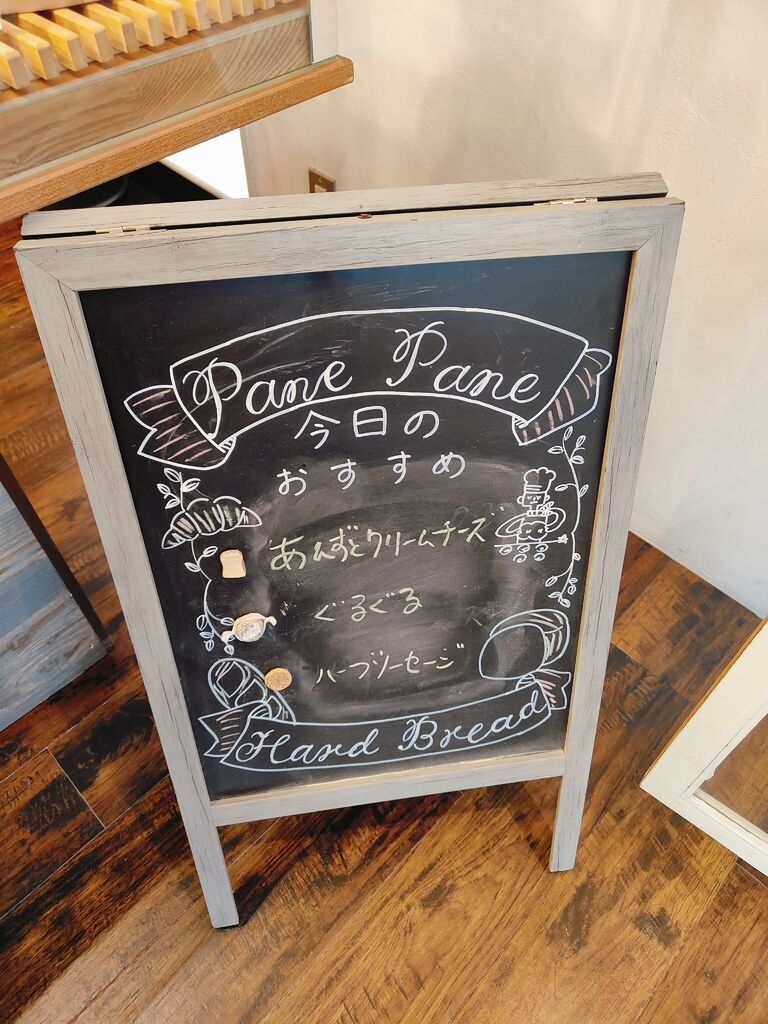 Pane Pane
今日の
おすすめ
あんずとクリームチーズ
ぐるぐる
ハーブソーセージ
Hard Bread